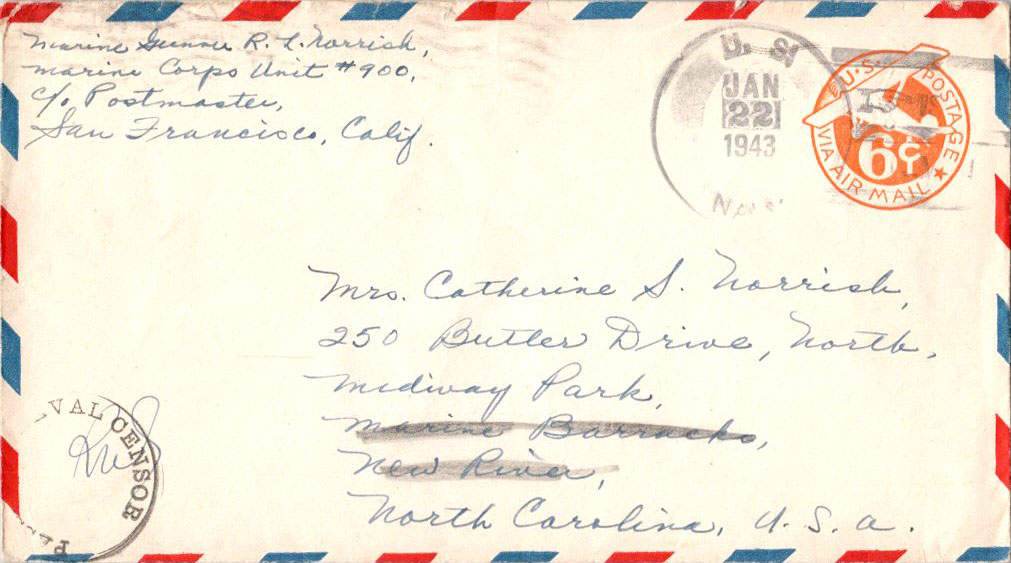 Marine Gunner R. L. Norrish,
Marine Corps Unit #900,
c/o Postmaster,
San Francisco, Calif.
U. S.
JAN
22
1943
U.S. POSTAGE
6¢
VIA AIR MAIL
Mrs. Catherine S. Norrish,
250 Butler Drive, North,
Midway Park,
Marine Barracks,
New River,
North Carolina, U. S. A.
VAL CENSOR